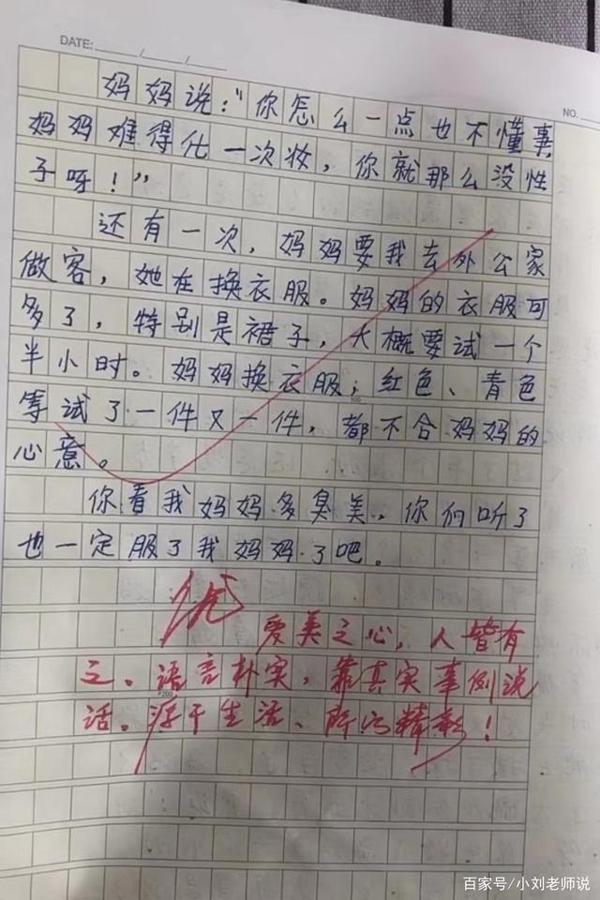 DATE: / /
NO.
妈妈说:“你怎么一点也不懂事,
妈妈难得化一次妆,你就那么没性
子呀!”
还有一次,妈妈要我去外公家
做客,她在换衣服。妈妈的衣服可
多了,特别是裙子,大概要试一个
半小时。妈妈换衣服,红色、青色
等试了一件又一件,都不合妈妈的
心意。
你看我妈妈多臭美,你们听了
也一定服了我妈妈了吧。
优
爱美之心,人皆有
之。语言朴实,靠真实事例说
话。源于生活、所以精彩!
百家号/小刘老师说